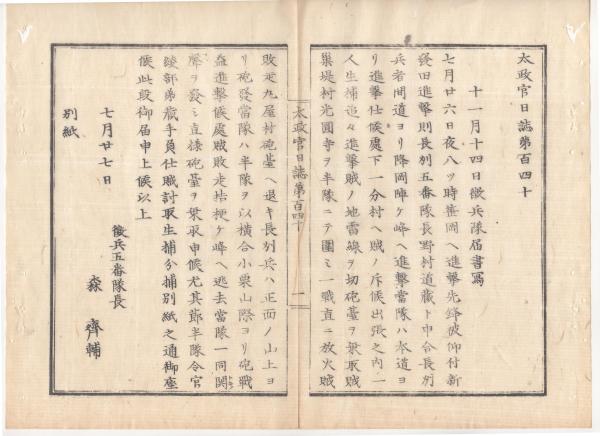 太政官日誌第百四十
十一月十四日徴兵隊届書寫
七月廿六日夜八ツ時笹岡ヘ進擊先鋒被仰付新
發田進擊則長州五番隊長野村道藏ト申合長州
兵者間道ヨリ降岡陣ケ峰ヘ進擊當隊ハ本道ヨ
リ進擊仕候處下一分村ヘ賊ノ斥候出張之內一
人生捕追々進擊賊ノ地雷線ヲ切砲臺ヲ乗取賊
巢堤村光圓寺ヲ半隊ニテ圍ミ一戰直ニ放火賊
敗走九屋村砲臺ヘ退キ長州兵ハ正面ノ山上ヨ
リ砲發當隊ハ半隊ヲ以橫合小栗山際ヨリ砲戰
益進擊候處賊敗走桔梗ケ峰ヘ逃去當隊一同鬨
聲ヲ發シ直樣砲臺ヲ乗取申候尤其節半隊令官
綾部弟藏手負仕賊討取生捕分捕別紙之通御座
候此段御届申上候以上
七月廿七日
徴兵五番隊長
森 齊輔
別紙
太政官日誌第百四十
一